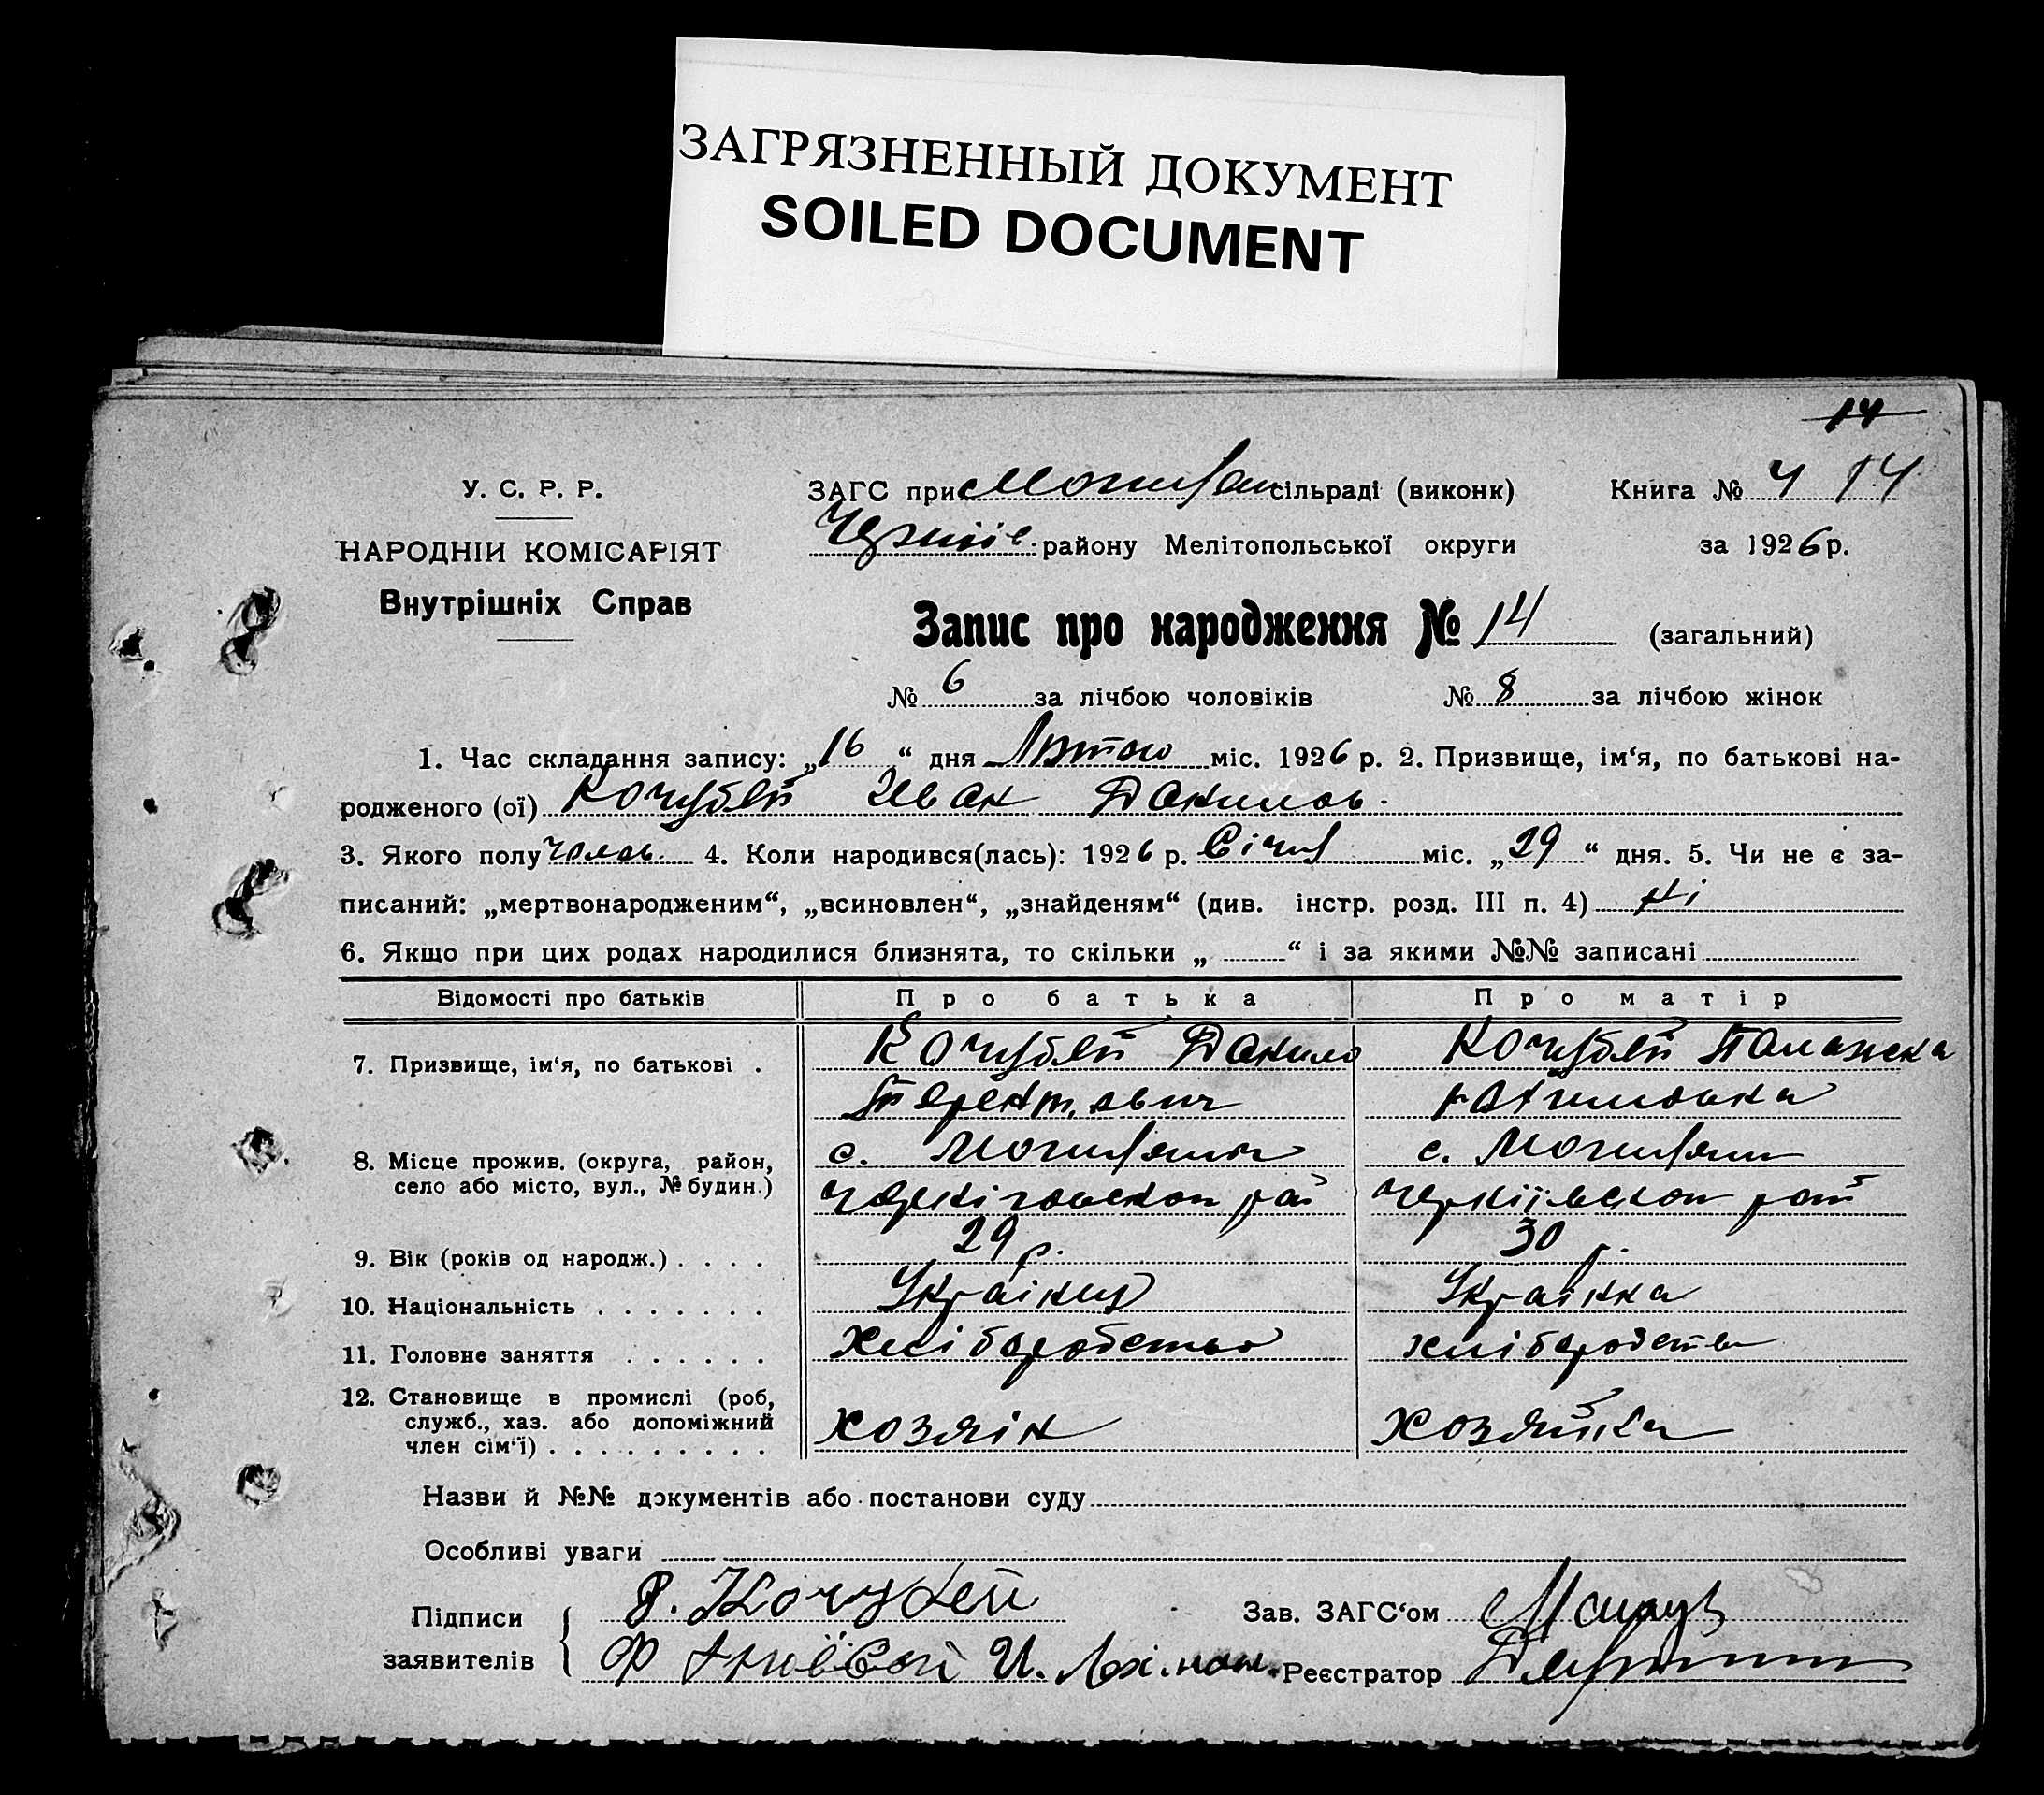 ЗАГРЯЗНЕННЫЙ ДОКУМЕНТ
SOILED DOCUMENT
14
У. С. Р. Р.
ЗАГС при сільраді (виконк) Книга № 4 14
НАРОДНІИ КОМІСАРІЯТ
району Мелітопольської округи за 1926 р.
Внутрішніх Справ
Запис про народження № 14 (загальний)
№ 6 за лічбою чоловіків № 8 за лічбою жінок
1. Час складання запису: „16“ дня Лютого міс. 1926 р. 2. Призвище, ім‘я, по батькові на-
родженого (ої) Кочубей Иван Данилов.
3. Якого полу чолов. 4. Коли народився(лась): 1926 р. Січня міс. „29“ дня. 5. Чи не є за-
писаний: „мертвонародженим“, „всиновлен“, „знайденям“ (див. інстр. розд. III п. 4) ні
6. Якщо при цих родах народилися близнята, то скільки „ “ і за якими №№ записані
Відомості про батьків Про батька Про матір
7. Призвище, ім‘я, по батькові . Кочубей Данило Кочубей Палажка
Терентович
8. Місце прожив. (округа, район, с. с.
село або місто, вул., № будин.)
9. Вік (років од народж.) . . . . 29 р. 30 р.
10. Національність . . . . . . . Украінец Украінка
11. Головне заняття . . . . . . хліборобство хліборобство
12. Становище в промислі (роб,
служб., хаз. або допоміжний хозяін хозяйка
член сім‘ї) . . . . . . . . .
Назви й №№ документів або постанови суду
Особливі уваги
Підписи Кочубей Зав. ЗАГС‘ом
заявителів Реєстратор